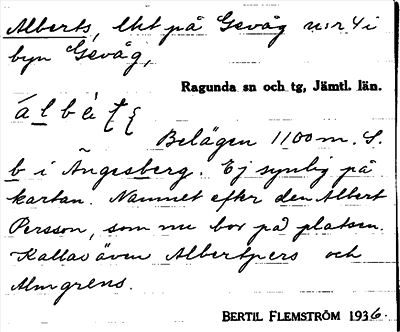 Alberts, lht på Gevåg n:r 4 i
byn Gevåg,
Ragunda sn och tg, Jämtl. län.
Belägen 1100 m. S.
b i Ängesberg. Ej synlig på
kartan. Namnet efter den Albert
Persson, som nu bor på platsen.
Kallas även Albertpers och
Almgrens.
BERTIL FLEMSTRÖM 1936.